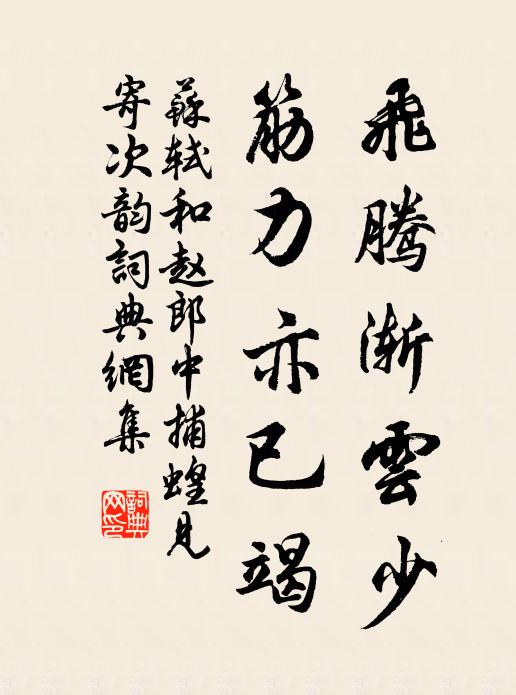 飛騰漸雲少
筋力亦已竭
蘇軾和赵郎中捕蝗見
寄次韵詞典網集
詞典
网印